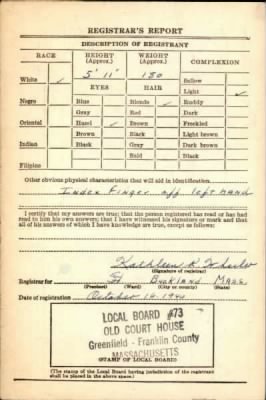 REGISTRAR'S REPORT
DESCRIPTION OF REGISTRANT
RACE HEIGHT (Approx.) WEIGHT (Approx.) COMPLEXION
5' 11" 180
White ✓ Sallow
EYES HAIR Light ✓
Negro Blue Blonde ✓ Ruddy
Gray Red Dark
Oriental Hazel ✓ Brown Freckled
Brown Black Light brown
Indian Black Gray Dark brown
Bald Black
Filipino
Other obvious physical characteristics that will aid in identification.
Index Finger off left hand
I certify that my answers are true; that the person registered has read or has had
read to him his own answers; that I have witnessed his signature or mark and that
all of his answers of which I have knowledge are true, except as follows:
Kathleen A. Wheeler
(Signature of registrar)
Registrar for Buckland Mass
(Precinct) (Ward) (City or county) (State)
Date of registration October 16 1940
LOCAL BOARD #73
OLD COURT HOUSE
Greenfield - Franklin County
MASSACHUSETTS
(STAMP OF LOCAL BOARD)
(The stamp of the Local Board having jurisdiction of the registrant
shall be placed in the above space.)